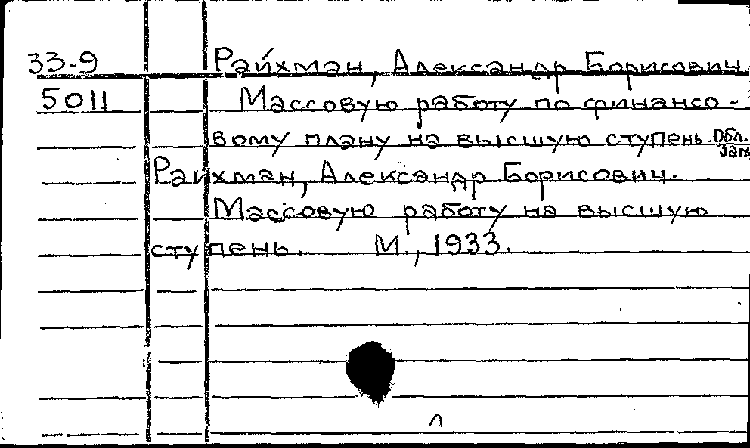 33-9 Райхман, Александр Борисович
5011 Массовую работу по финансо-
вому плану на высшую ступень. Обл.
Загл
Райхман, Александр Борисович.
Массовую работу на высшую
ступень. М., 1933.
л